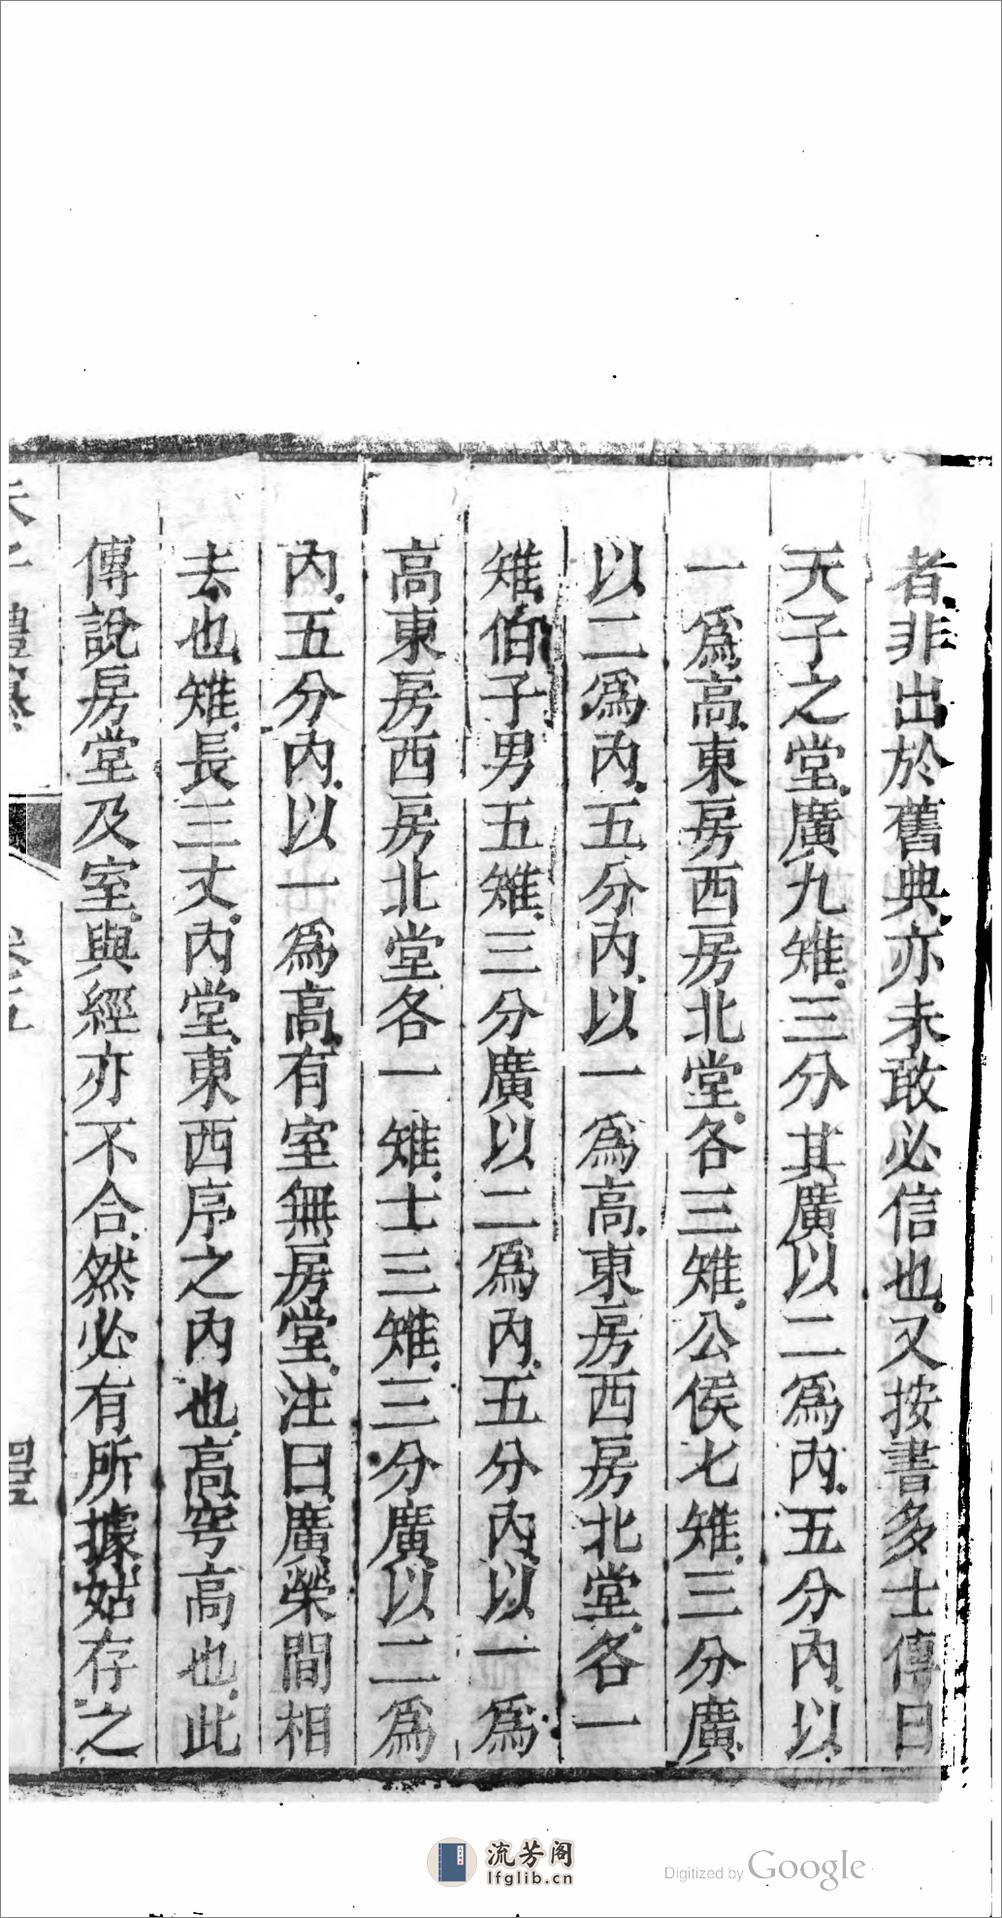 者非出於舊典亦未敢必信也又按書多士傳曰
天子之堂廣九雉三分其廣以二爲內五分內以
一爲高東房西房北堂各三雉公侯七雉三分廣
以二爲內五分內以一爲高東房西房北堂各一
雉伯子男五雉三分廣以二爲內五分內以一爲
高東房西房北堂各一雉士三雉三分廣以二爲
內五分內以一爲高有室無房堂注曰廣榮間相
去也雉長三丈內堂東西序之內也高穹高也此
傳說房堂及室與經亦不合然必有所據姑存之
流芳阁
lfglib.cn
Digitized by Google